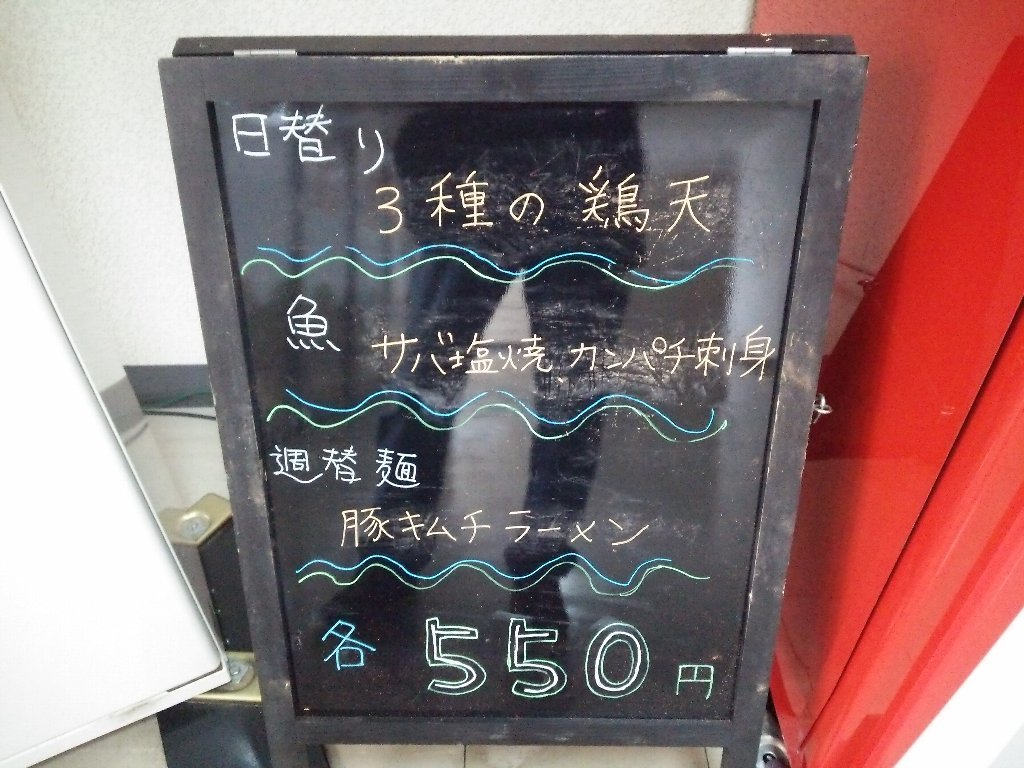 日替り
3種の鶏天
魚
サバ塩焼 カンパチ刺身
週替麺
豚キムチラーメン
各 550円